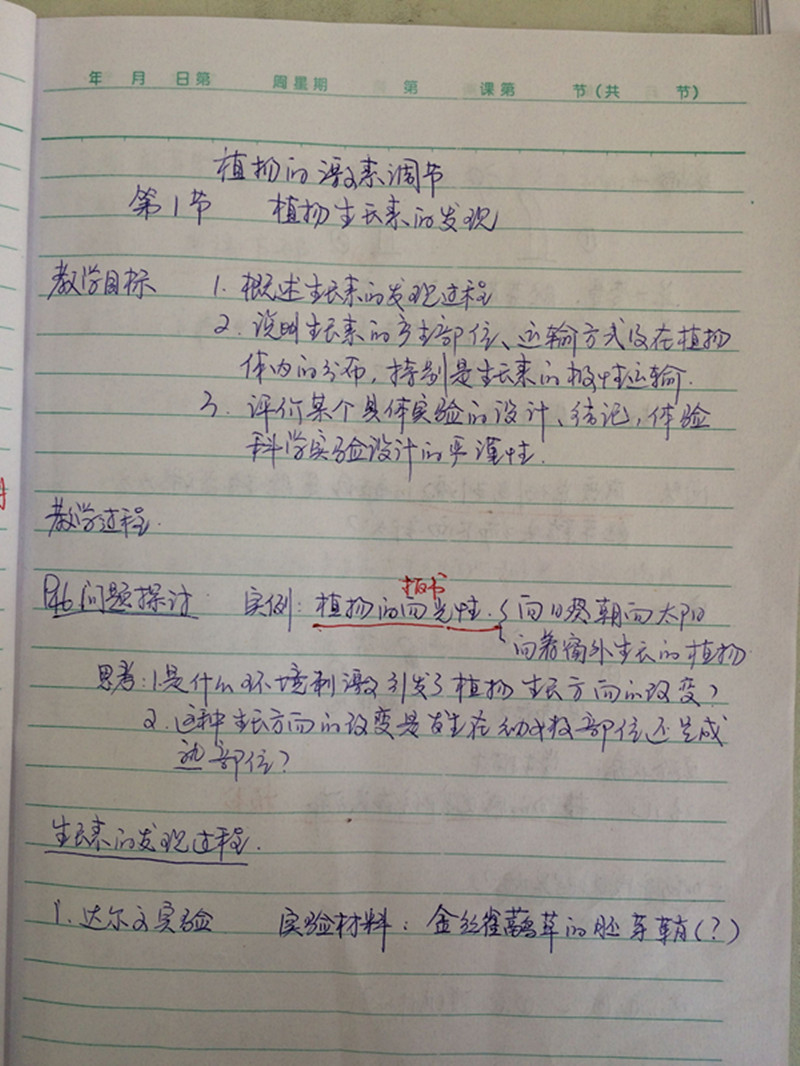 年 月 日第 周星期 第 课第 节(共 节)
植物的激素调节
第1节 植物生长素的发现
教学目标 1. 概述生长素的发现过程
2. 说明生长素的产生部位、运输方式及在植物
体内的分布,特别是生长素的极性运输.
3. 评价某个具体实验的设计、结论,体验
科学实验设计的严谨性.
教学过程.
P46问题探讨 实例: 植物的向光性. 板书 向日葵朝向太阳
向着窗外生长的植物
思考:1.是什么环境刺激引发了植物生长方向的改变?
2.这种生长方向的改变是发生在幼嫩部位还是成
熟部位?
生长素的发现过程.
1. 达尔文实验 实验材料: 金丝雀虉草的胚芽鞘(?)